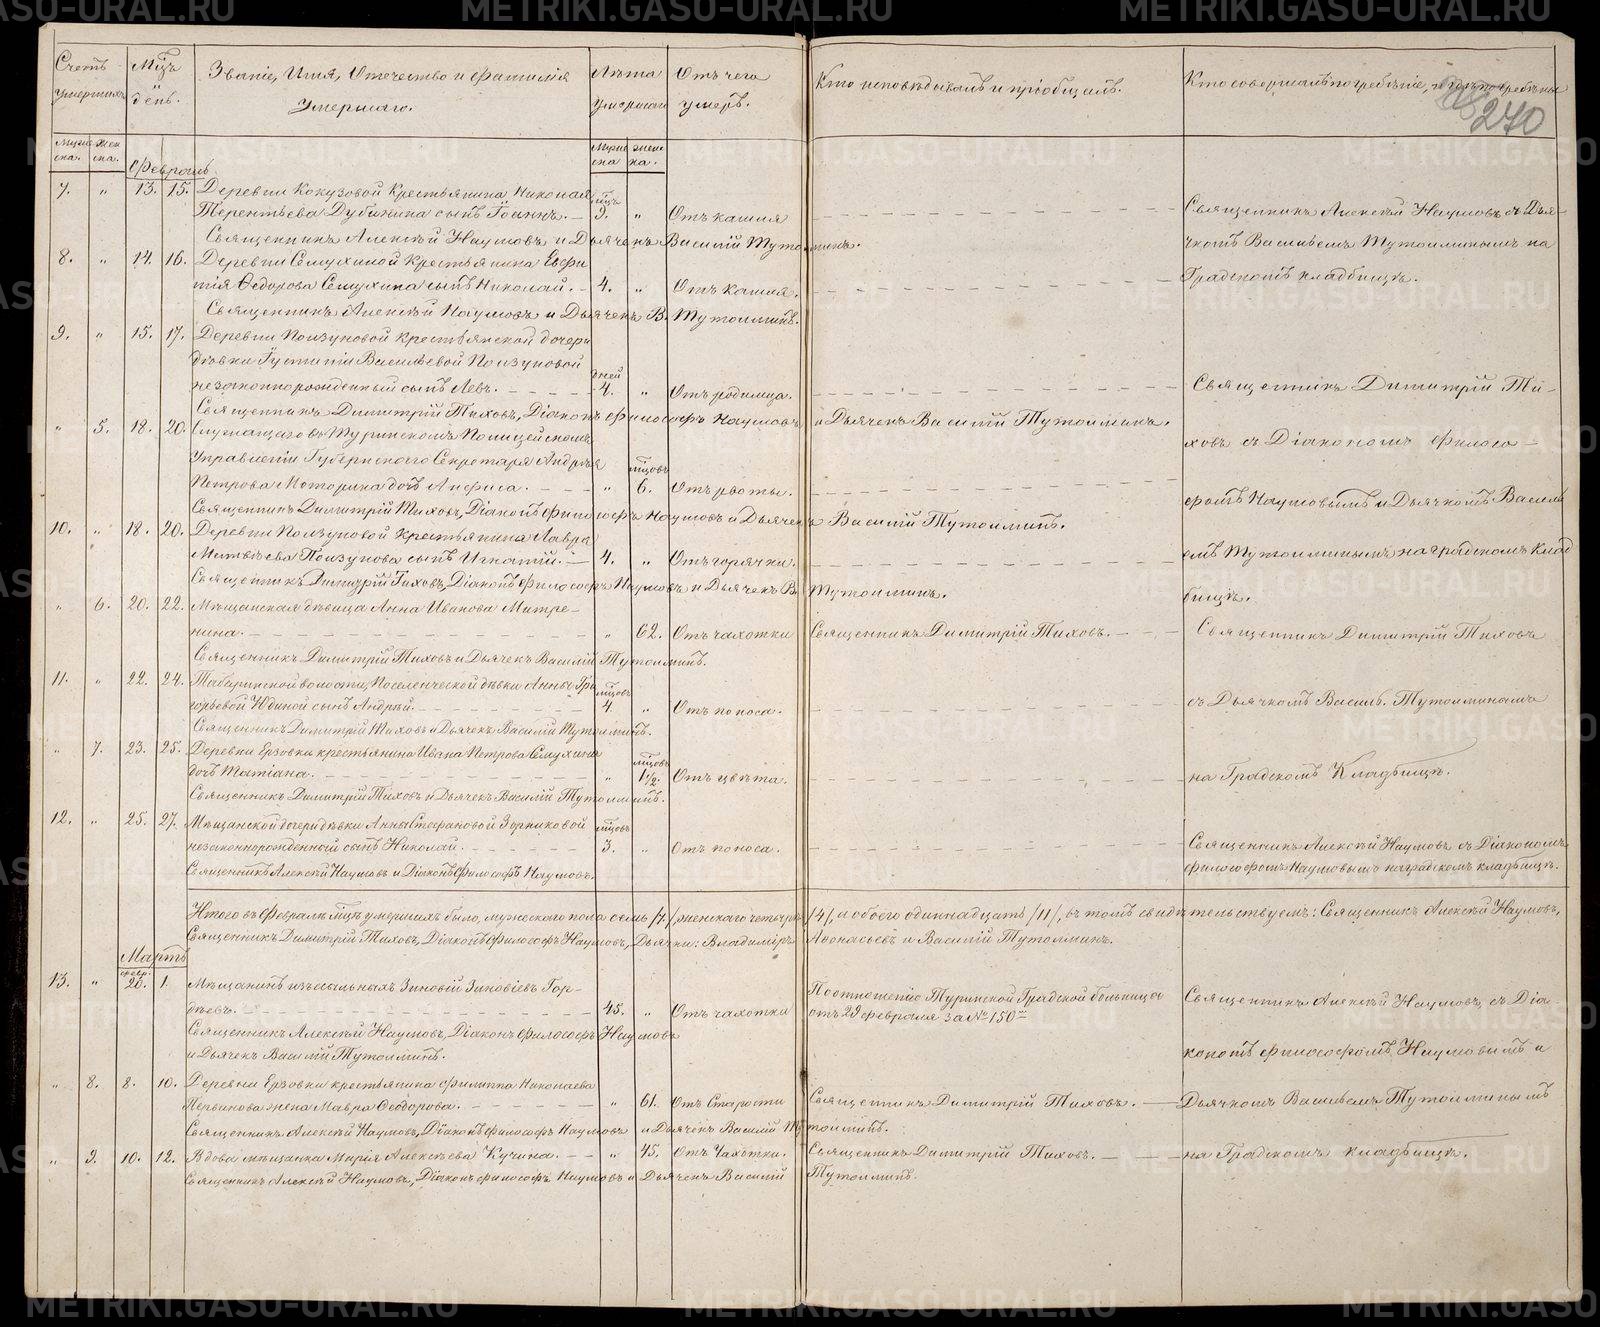 Счетъ умершихъ
Мцъ и день.
Званіе, Имя, Отечество и фамилія умершаго.
Лѣта умершаго
Отъ чего умеръ.
Кто исповѣдывалъ и пріобщалъ.
Кто совершалъ погребеніе, и гдѣ погребены
270
Муже ска. Жен ска.
Муже ска Жен ка.
Февраль
7. " 13. 15. Деревни Кокузовой Крестьянина Николая мцъ
Терентьева Дубинина сынъ Іоаннъ. — " Отъ кашля
Священникъ Алексѣй Наумовъ и Дьячекъ Василій Тутолминъ.
Священникъ Алексѣй Наумовъ съ Дья-
чкомъ Васильемъ Тутолминымъ на
Градскомъ кладбищѣ.
8. " 14. 16. Деревни Семухиной Крестьянина Евфи
мія Ѳедорова Семухина сынъ Николай. — 4. " Отъ кашля.
Священникъ Алексѣй Наумовъ и Дьячекъ В. Тутолминъ.
9. " 15. 17. Деревни Ползуновой крестьянской дочери
дѣвки Іустиніи Васильевой Ползуновой дней
незаконнорожденный сынъ Левъ. — 4. " Отъ родимца.
Священникъ Димитрій Тиховъ, Діаконъ Философъ Наумовъ и Дьячекъ Василій Тутолминъ.
Священникъ Димитрій Ти-
ховъ съ Діакономъ Филосо-
фомъ Наумовымъ и Дьячкомъ Василь
емъ Тутолминымъ на градскомъ клад
бищѣ.
" 5. 18. 20. Служащаго въ Туринскомъ Полицейскомъ
Управленіи Губернскаго Секретаря Андрея мцовъ
Петрова Моторина дочь Анфиса. — " 6. Отъ рвоты.
Священникъ Димитрій Тиховъ, Діаконъ Философъ Наумовъ и Дьячекъ Василій Тутолминъ.
10. " 18. 20. Деревни Ползуновой Крестьянина Лавра
Матвѣева Ползунова сынъ Игнатій. — 4. " Отъ горячки.
Священникъ Димитрій Тиховъ, Діаконъ Философъ Наумовъ и Дьячекъ В. Тутолминъ.
" 6. 20. 22. Мѣщанская дѣвица Анна Иванова Митре-
нина. — " 62. Отъ чахотки Священникъ Димитрій Тиховъ. —
Священникъ Димитрій Тиховъ и Дьячекъ Василій Тутолминъ.
Священникъ Димитрій Тиховъ
съ Дьячкомъ Василь. Тутолминымъ
на Градскомъ Кладбищѣ.
11. " 22. 24. Табаринской волости, Поселенческой дѣвки Анны Гри мцовъ
горьевой Юдиной сынъ Андрей. — 4. " Отъ поноса.
Священникъ Димитрій Тиховъ и Дьячекъ Василій Тутолминъ.
" 7. 23. 25. Деревни Ерзовки крестьянина Ивана Петрова Семухина мцовъ
дочь Татіана. — " 1½. Отъ цвѣта.
Священникъ Димитрій Тиховъ и Дьячекъ Василій Тутолминъ.
12. " 25. 27. Мѣщанской дочери дѣвки Анны Стефановой Зорниковой мцовъ
незаконнорожденный сынъ Николай. — 3. " Отъ поноса.
Священникъ Алексѣй Наумовъ и Діаконъ Философъ Наумовъ.
Священникъ Алексѣй Наумовъ съ Діакономъ
Философомъ Наумовымъ на градскомъ кладбищѣ.
Итого въ Февралѣ мцѣ умершихъ было, мужескаго пола семь /7/, женскаго четыре /4/, и обоего одиннадцать /11/, въ томъ свидѣтельствуемъ: Священникъ Алексѣй Наумовъ,
Священникъ Димитрій Тиховъ, Діаконъ Философъ Наумовъ, Дьячки: Владиміръ Аѳонасьевъ и Василій Тутолминъ.
Мартъ
февр.
13. " 20. 1. Мѣщанинъ изъ ссыльныхъ Зиновій Зиновіевъ Гор-
дѣевъ. — 45. " Отъ чахотки
По отношенію Туринской Градской больницы
отъ 29 февраля за № 150
Священникъ Алексѣй Наумовъ, Діаконъ Философъ Наумовъ
и Дьячекъ Василій Тутолминъ.
Священникъ Алексѣй Наумовъ, съ Діа-
кономъ Философомъ Наумовымъ и
Дьячкомъ Васильемъ Тутолминымъ
на Градскомъ кладбищѣ.
" 8. 8. 10. Деревни Ерзовки крестьянина Филиппа Николаева
Первинова жена Мавра Ѳеодорова. — " 61. Отъ Старости Священникъ Димитрій Тиховъ. —
Священникъ Алексѣй Наумовъ, Діаконъ Философъ Наумовъ и Дьячекъ Василій Тутолминъ.
" 9. 10. 12. Вдова мѣщанка Марія Алексѣева Кучина. — " 45. Отъ Чахотки. Священникъ Димитрій Тиховъ. —
Священникъ Алексѣй Наумовъ, Діаконъ Философъ Наумовъ и Дьячекъ Василій Тутолминъ.
METRIKI.GASO-URAL.RU